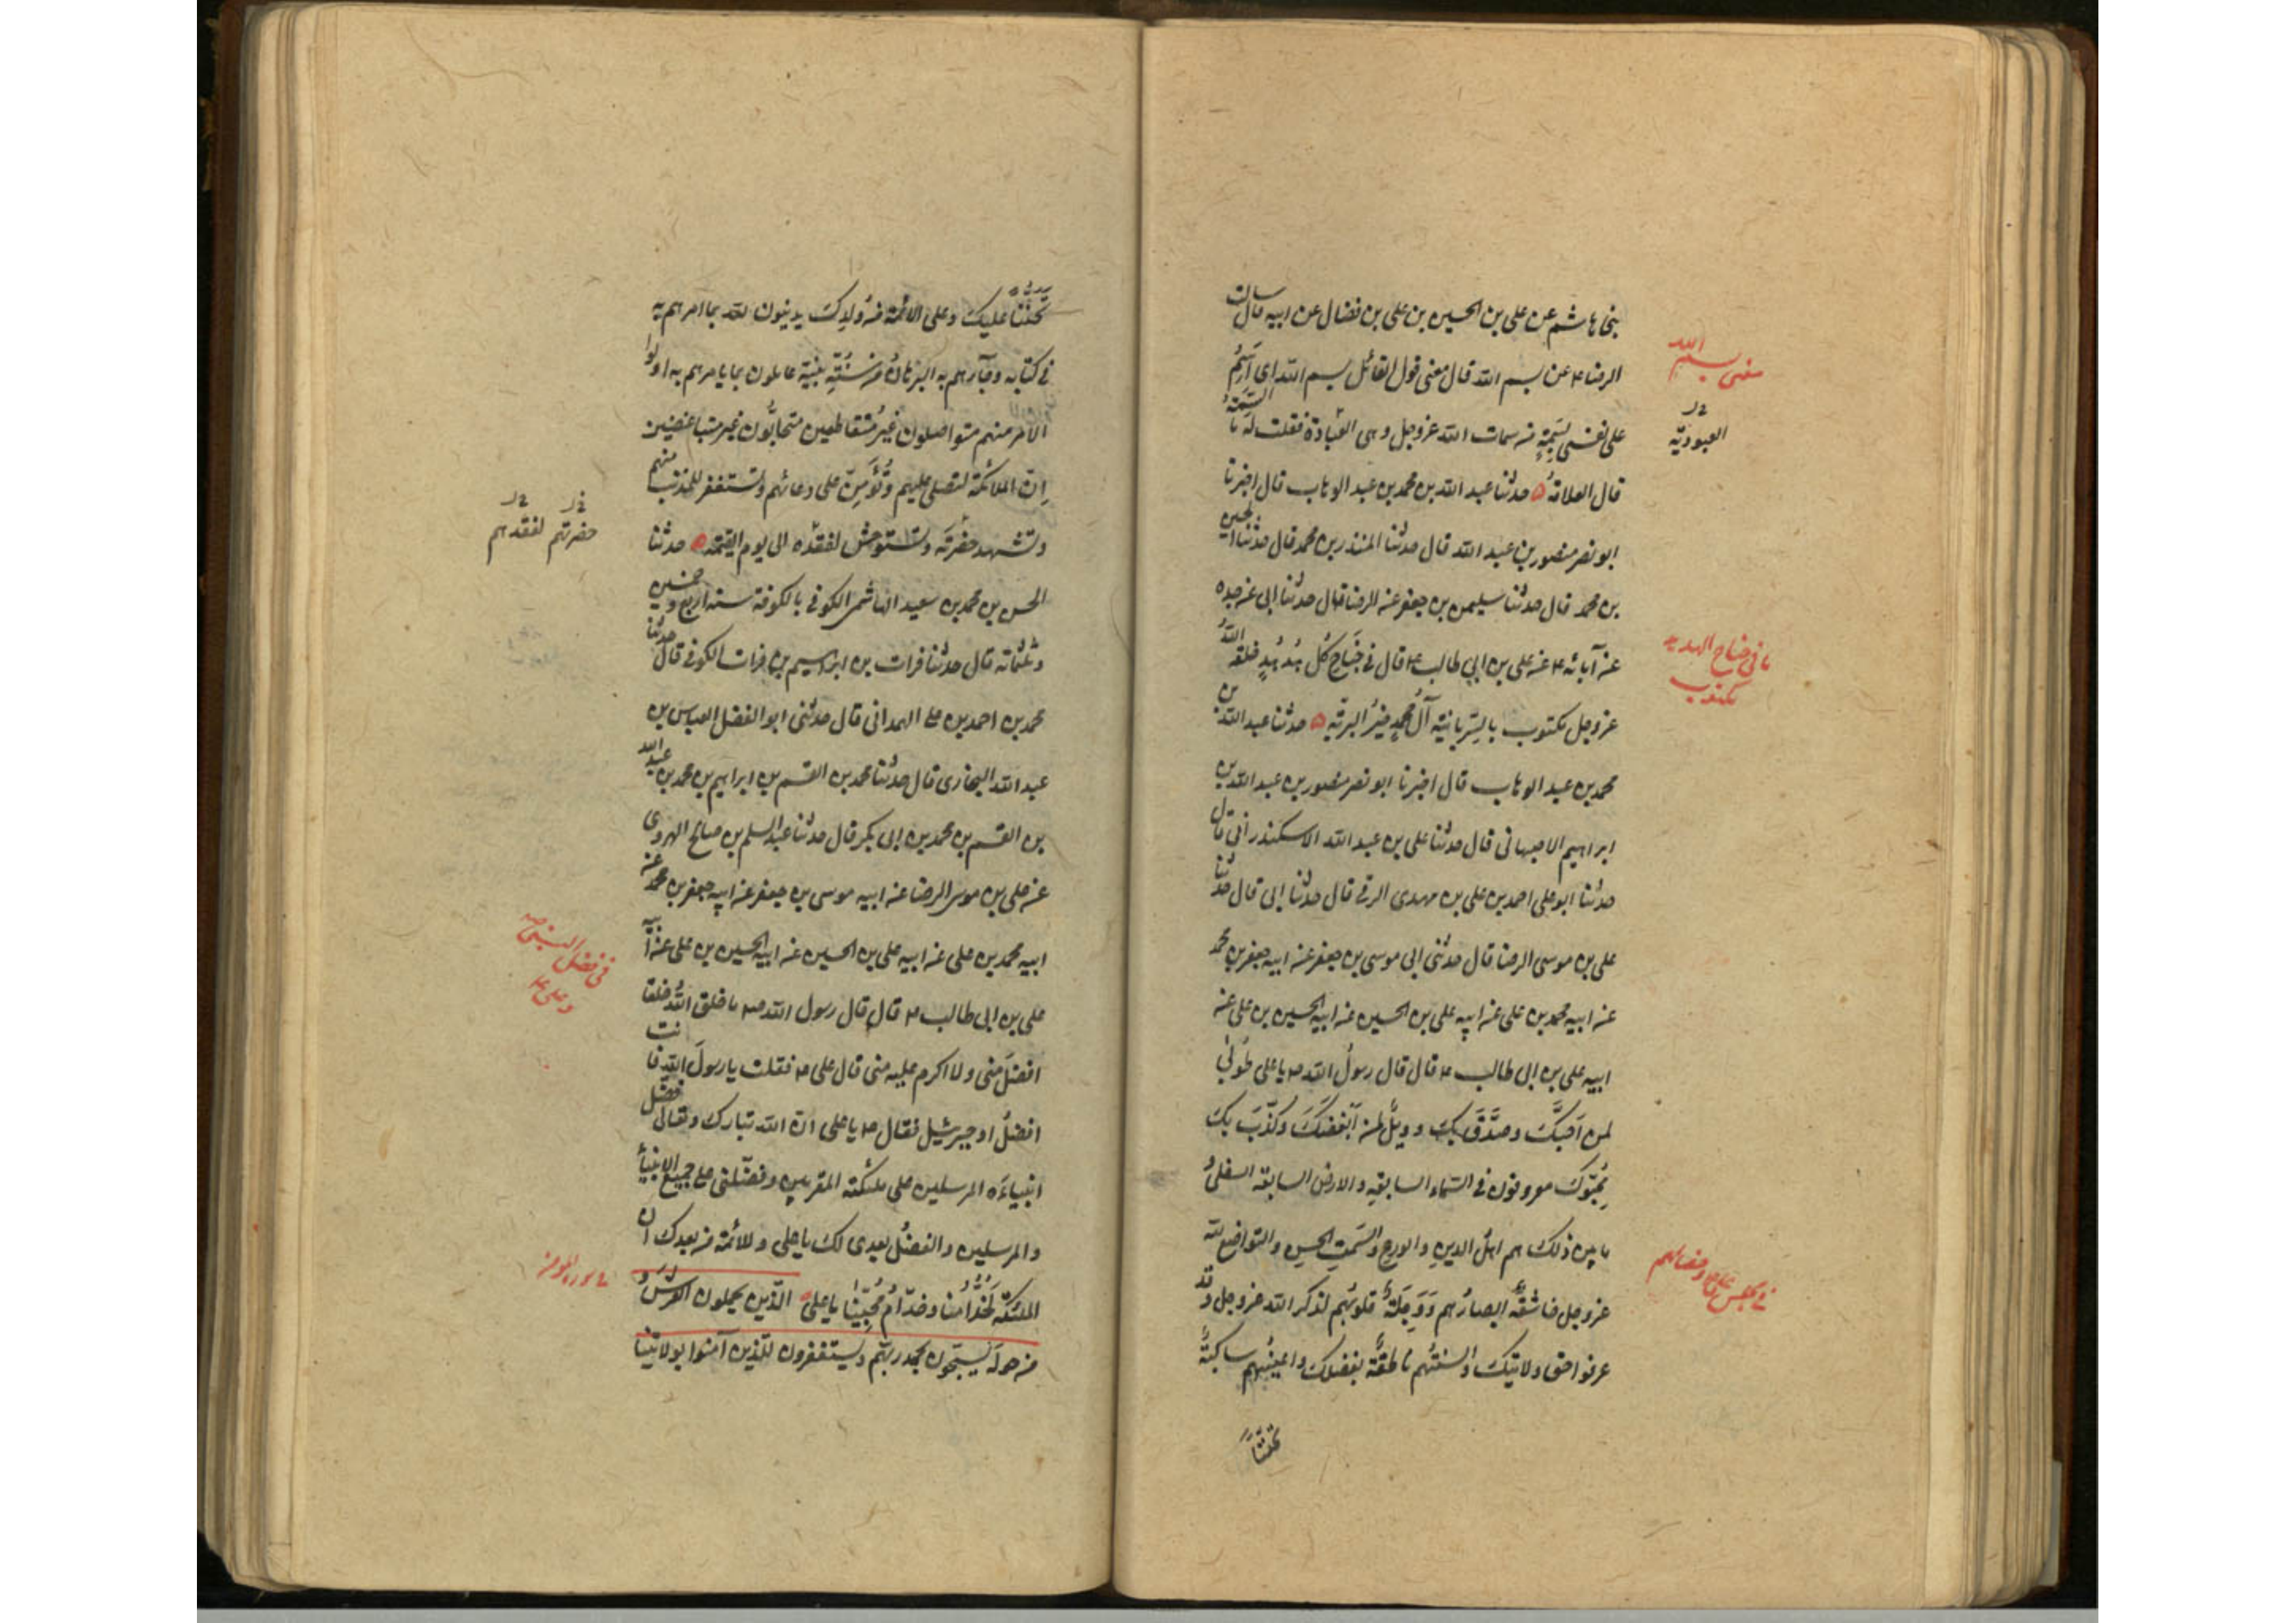 بنی هاشم عن علی بن الحسین بن علی بن فضال عن ابیه قال سالت
الرضا ع عن بسم الله قال معنی قول القائل بسم الله ای اَسِمُ
علی نفسی بسِمَةٍ من سمات الله عز وجل و هی العِبادة فقلت له ما السِّمَةُ
قال العلامةُ حدثنا عبد الله بن محمد بن عبد الوهاب قال اخبرنا
ابو نصر منصور بن عبد الله قال حدثنا المنذر بن محمد قال حدثنا الحسین
بن محمد قال حدثنا سلیمن بن جعفر عن الرضا قال حدثنا ابی عن جده
عن آبائه ع عن علی بن ابی طالب ع قال فی جَناحِ کُل هُدهُدٍ خلقه اللهُ
عز وجل مکتوب بالسِّریانیة آلُ محمدٍ خیرُ البریّة حدثنا عبد الله بن
محمد بن عبد الوهاب قال اخبرنا ابو نصر منصور بن عبد الله بن
ابراهیم الاصبهانی قال حدثنا علی بن عبد الله الاسکندرانی قال
حدثنا ابو علی احمد بن علی بن مهدی الرقی قال حدثنا ابی قال حدثنا
علی بن موسی الرضا قال حدثنی ابی موسی بن جعفر عن ابیه جعفر بن محمد
عن ابیه محمد بن علی عن ابیه علی بن الحسین عن ابیه الحسین بن علی عن
ابیه علی بن ابی طالب ع قال قال رسولُ الله ص یا علی طُوبی
لمن اَحَبَّکَ و صَدَّقَ بکَ و ویلٌ لمن اَبْغَضَکَ وَ کذّبَ بکَ
مُحِبّوکَ معروفون فی السّماء السابعةِ و الارض السابعة السفلی و
ما بین ذلک هم اهلُ الدینِ و الورعِ و السَمتِ الحسنِ و التواضعِ لله
عز وجل خاشعةٌ ابصارُهم وَ وَجِلَةٌ قلوبُهم لذکر الله عز وجل و قد
عرفوا حق ولایتک و السنتُهم ناطقةٌ بفضلک و اعینُهم ساکبةٌ
تحنّناً
معنی بسم الله
العبودیّة
ما فی جناح الهدهد
مکتوب
تَحَنُّناً علیک و علی الائمة من وُلدِکَ یدینون لله بما امرهم به
فی کتابه و جآءهم به البرهانُ من سُنّةِ نبیّه عاملون بما یامرهم به اولوا
الامر منهم متواصلون غیرُ مُتقاطعین متحابُّون غیر متباغضین
اِن الملائکة لتصلی علیهم و تُؤَمِّن علی دعائهم و تستغفر للمذنب منهم
و تشهد حضرتَه و تستوحش لفقده الی یوم القیمة حدثنا
الحسن بن محمد بن سعید الهاشمی الکوفی بالکوفة سنه اربع و خمسین
و ثلثمائة قال حدثنا فرات بن ابراهیم بن فرات الکوفی قال حدثنا
محمد بن احمد بن علی الهمدانی قال حدثنی ابو الفضل العباس بن
عبد الله البخاری قال حدثنا محمد بن القسم بن ابراهیم بن محمد بن عبد الله
بن القسم بن محمد بن ابی بکر قال حدثنا عبد السلم بن صالح الهروی
عن علی بن موسی الرضا عن ابیه موسی بن جعفر عن ابیه جعفر بن محمد عن
ابیه محمد بن علی عن ابیه علی بن الحسین عن ابیه الحسین بن علی عن ابیه
علی بن ابی طالب ع قال قال رسول الله ص ما خلق اللهُ خلقا
افضلَ منی و لا اکرم علیه منی قال علی ع فقلت یا رسولَ الله فانت
افضلُ او جبرئیل فقال ص یا علی ان الله تبارک و تعالی فضّل
انبیاءَه المرسلین علی ملئکته المقربین و فضّلنی علی جمیع الانبیاء
و المرسلین و الفضلُ بعدی لک یا علی و للائمة من بعدک ان
الملئکة لخُدّامُنا و خدّامُ مُحِبّینا یا علی الّذین یحملون العرشَ و
من حولَه یُسبّحون بحمد ربّهم و یستغفرون للّذین آمنوا بولایتنا
حضرتهم لفقدهم
فی فضل النبی ص
و علی ع